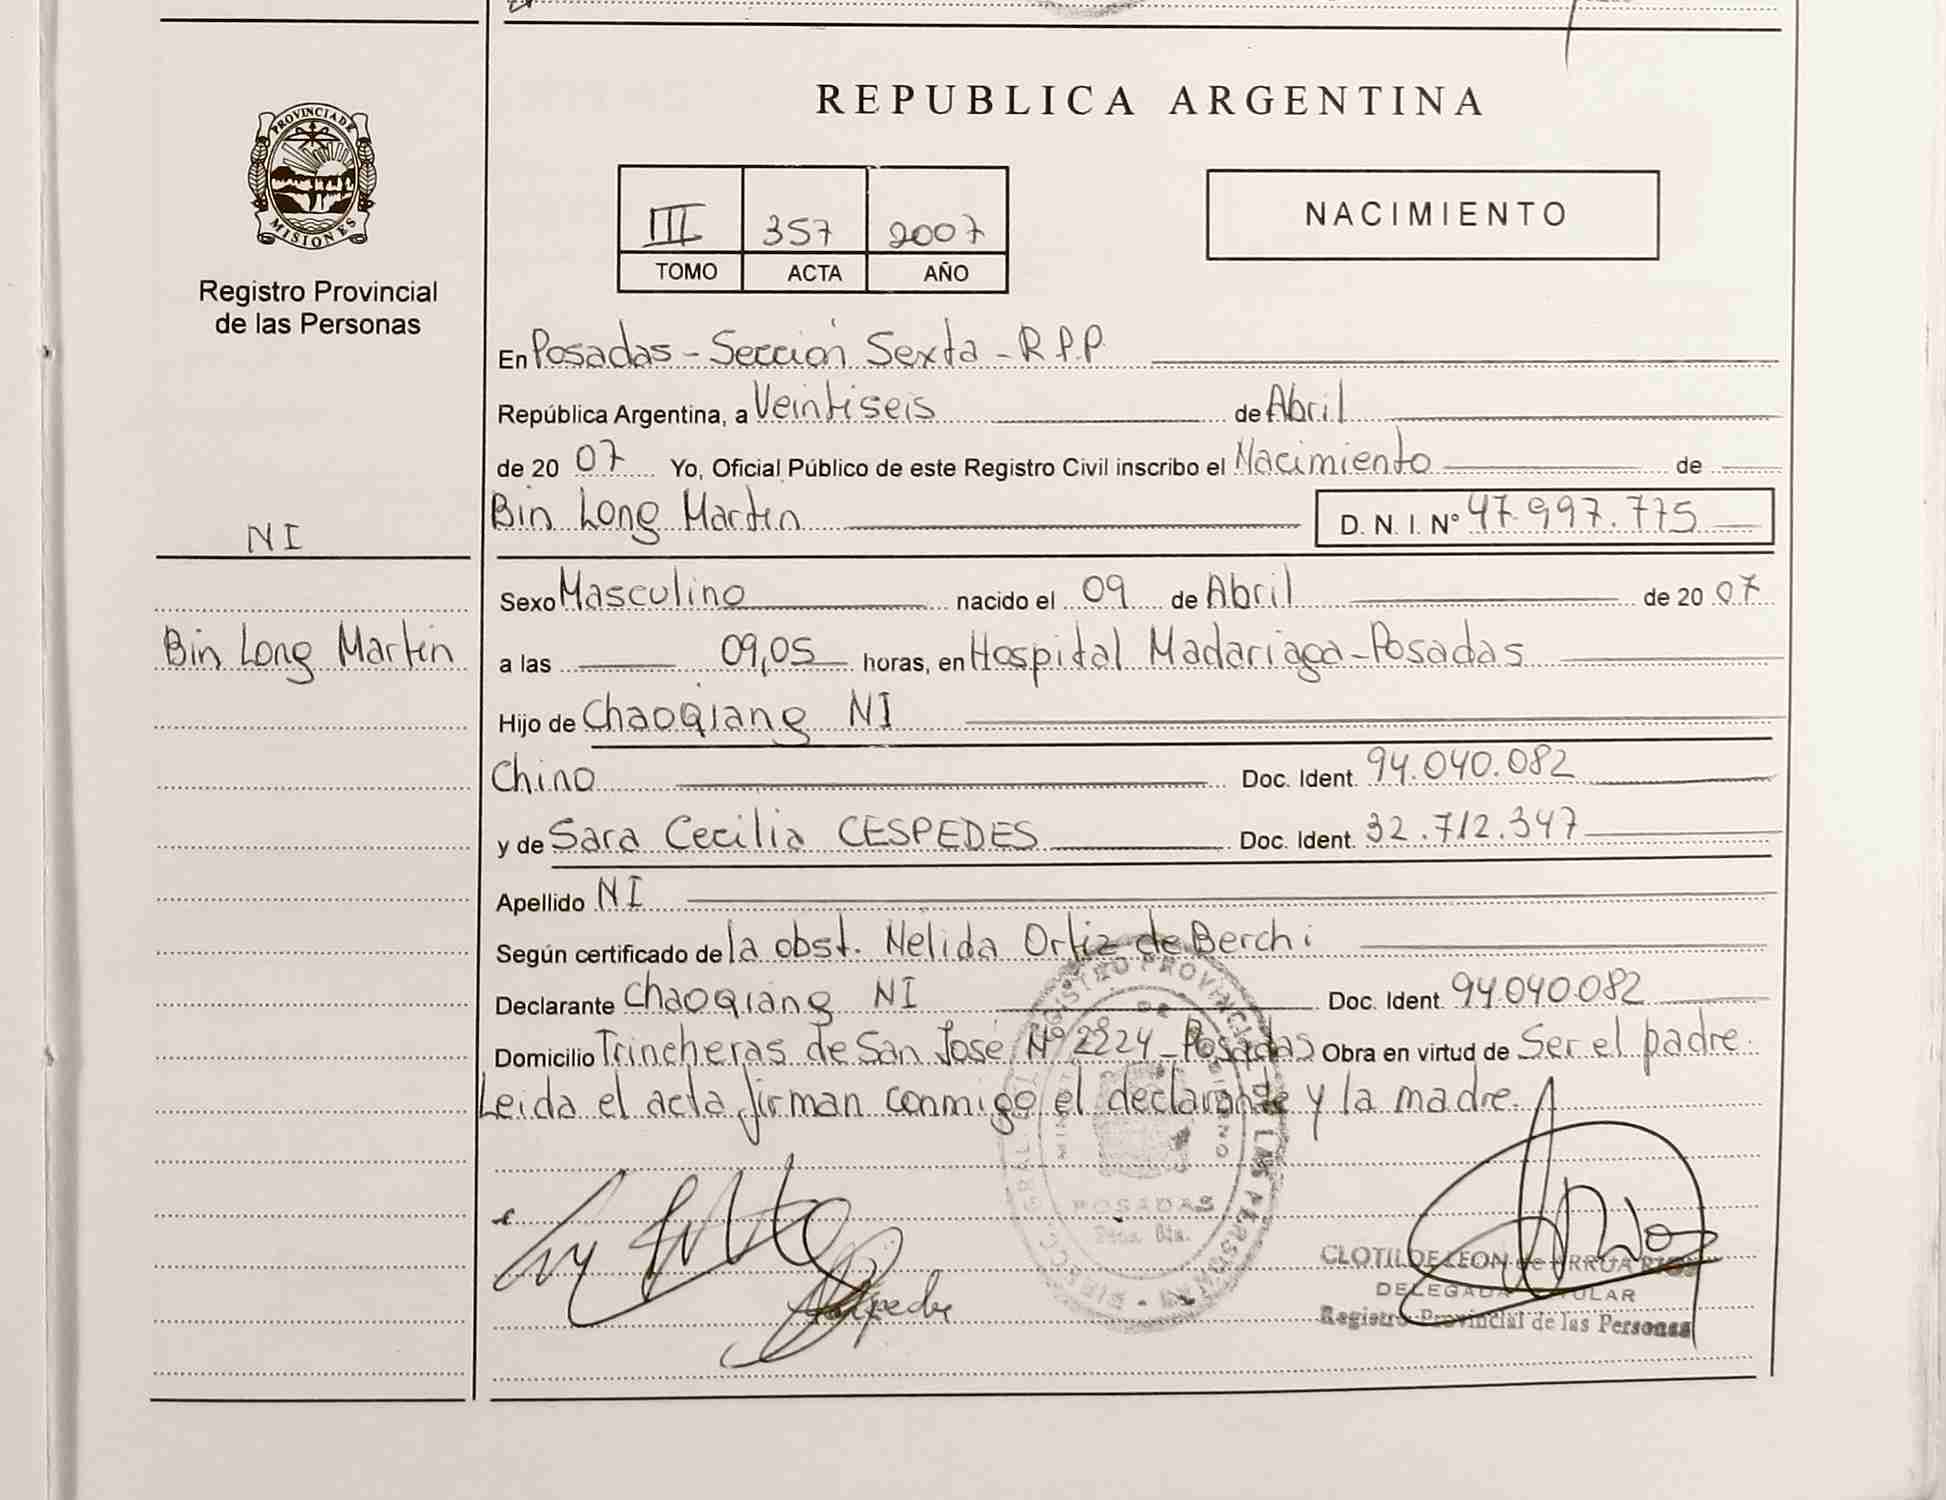 PROVINCIA DE
MISIONES
Registro Provincial
de las Personas
NI
Bin Long Martin
REPUBLICA ARGENTINA
III 357 2007
TOMO ACTA AÑO
NACIMIENTO
En Posadas - Sección Sexta - R.P.P.
República Argentina, a Veintiseis de Abril
de 2007 Yo, Oficial Público de este Registro Civil inscribo el Nacimiento de
Bin Long Martin D. N. I. Nº 47.997.775
Sexo Masculino nacido el 09 de Abril de 2007
a las 09,05 horas, en Hospital Madariaga - Posadas
Hijo de Chaoqiang NI
Chino Doc. Ident. 94.040.082
y de Sara Cecilia CESPEDES Doc. Ident. 32.712.347
Apellido NI
Según certificado de la obst. Nelida Ortiz de Berchi
Declarante Chaoqiang NI Doc. Ident. 94.040.082
Domicilio Trincheras de San José Nº 2224 - Posadas Obra en virtud de Ser el padre.
Leida el acta firman conmigo el declarante y la madre.
REGISTRO PROVINCIAL DE LAS PERSONAS
POSADAS
CLOTILDE LEON de ARRUA
DELEGADA TITULAR
Registro Provincial de las Personas